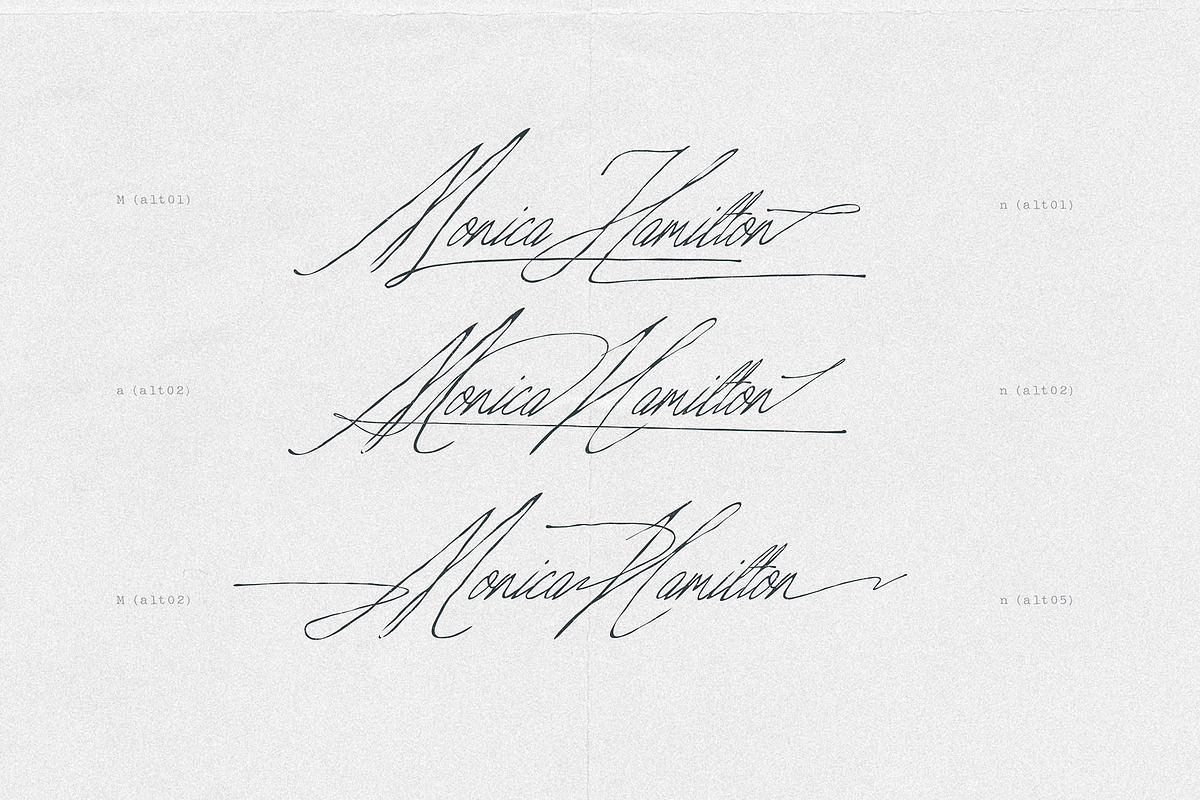 M (alt01) Monica Hamilton n (alt01)
a (alt02) Monica Hamilton n (alt02)
M (alt02) Monica Hamilton n (alt05)